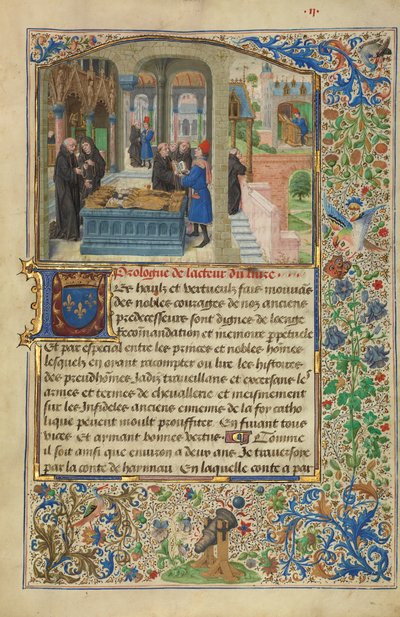 .ii.
Prologue de lacteur du livre
Les haulz et vertueulx fais mouuans
des nobles courages de noz anciens
predecesseurs sont dignes de loenge
Recommandation et memoire ppetuele
Et par especial entre les princes et nobles hommes
lesquelz en oyant racompter ou lire les histoires
des preudhommes Jadiz trauueillans et excersans les
armes et termes de cheuallerie et mesmement
sur les Infideles anciens ennemis de la foy catho
lique peuent moult prouffiter. En fuiant tous
vices Et aymant bonnes vertus. Comme
il soit ainsi que enuiron a deux ans Je trauersoye
par la conte de haynnau En laquelle conte a par